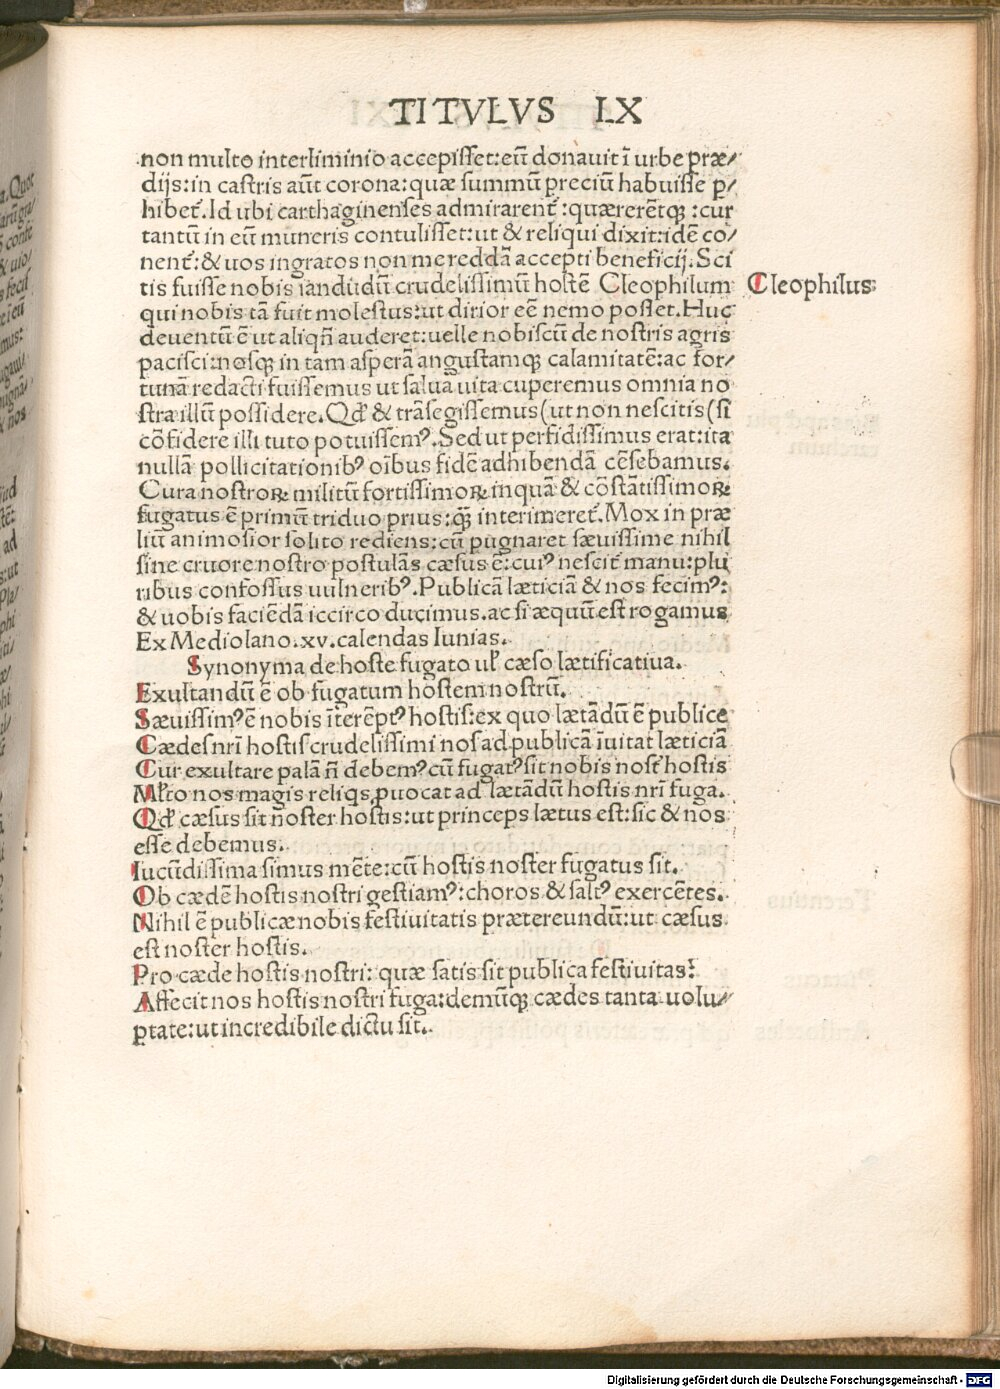 TITVLVS LX
non multo interliminio accepisset:eū donauit ī urbe præ/
dijs:in castris aūt corona:quæ summū preciū habuisse ꝑ/
hibet᷑.Id ubi carthaginenses admirarent᷑:quærerētꝗ:cur
tantū in eū muneris contulisset:ut & reliqui dixit:idē co/
nent᷑:& uos ingratos non me reddā accepti beneficij.Sci
tis fuisse nobis iandudū crudelissimū hostē Cleophilum
Cleophilus
qui nobis tā fuit molestus:ut dirior eē nemo posset.Huc
deuentū ē ut aliqn̄ auderet:uelle nobiscū de nostris agris
pacisci:nosꝗ in tam asperā angustamꝗ calamitatē:ac for/
tunā redacti fuissemus ut salua uita cuperemus omnia no
stra illū possidere.Qđ & trāsegissemus(ut non nescitis(si
cōfidere illi tuto potuissemꝰ.Sed ut perfidissimus erat:ita
nullā pollicitationibꝰ oībus fidē adhibendā cēsebamus.
Cura nostroꝝ militū fortissimoꝝ inquā & cōstātissimoꝝ
fugatus ē primū triduo prius:ꝗ̄ interimeret᷑.Mox in præ
liū animosior solito rediens:cū pugnaret sæuissime nihil
sine cruore nostro postulās cæsus ē:cuiꝰ nescit᷑ manu:plu
ribus confossus uulneribꝰ.Publicā læticiā & nos fecimꝰ:
& uobis faciēdā iccirco ducimus.ac si æquū est rogamus
Ex Mediolano.xv.calendas Iunias.
Synonyma de hoste fugato uł cæso lætificatiua.
Exultandū ē ob fugatum hostem nostrū.
Sæuissimꝰ ē nobis īterēptꝰ hostis:ex quo lætādū ē publice
Cædes nrī hostis crudelissimi nos ad publicā īuitat læticiā
Cur exultare palā n̄ debemꝰ cū fugatꝰ sit nobis nost᷑ hostis
Młto nos magis reliqs ꝓuocat ad lætādū hostis nrī fuga.
Qđ cæsus sit noster hostis:ut princeps lætus est:sic & nos
esse debemus.
Iucūdissima simus mēte:cū hostis noster fugatus sit.
Ob cædē hostis nostri gestiamꝰ:choros & saltꝰ exercētes.
Nihil ē publicæ nobis festiuitatis prætereundū:ut cæsus
est noster hostis.
Pro cæde hostis nostri: quæ satis sit publica festiuitas?
Affecit nos hostis nostri fuga:demūꝗ cædes tanta uolu/
ptate:ut incredibile dictu sit.
Digitalisierung gefördert durch die Deutsche Forschungsgemeinschaft - DFG